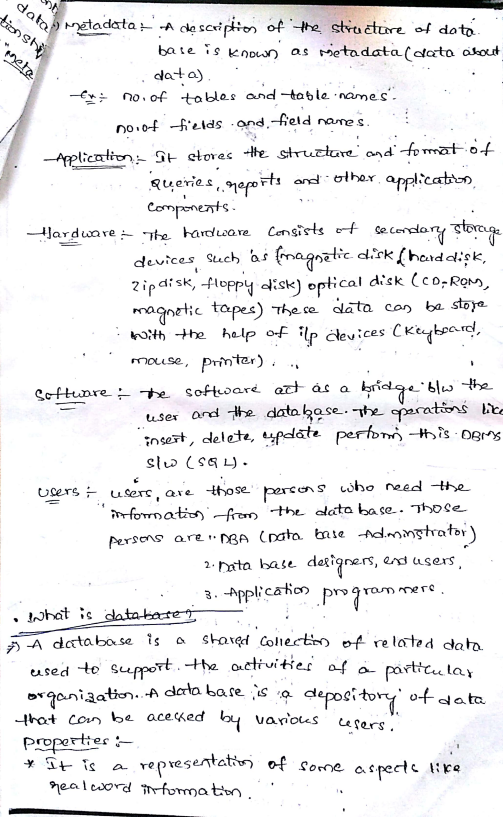 data
tionship
"meta
Metadata :- A description of the structure of data
base is known as metadata (data about
data).
Ex:- no. of tables and table names.
no. of fields and field names.
Application :- It stores the structure and format of
queries, reports and other application
components.
Hardware :- The hardware consists of secondary storage
devices such as (magnetic disk (hard disk,
zip disk, floppy disk) optical disk (CD-ROM,
magnetic tapes) These data can be store
with the help of i/p devices (Keyboard,
mouse, printer).
Software :- The software act as a bridge b/w the
user and the database. The operations like
insert, delete, update perform this DBMS
s/w (SQL).
Users :- users, are those persons who need the
information from the data base. Those
persons are 1. DBA (Data base Adminstrator)
2. Data base designers, end users,
3. Application programmers.
• What is database?
A) A database is a shared collection of related data
used to support the activities of a particular
organization. A data base is a depository of data
that can be acessed by various users.
Properties :-
* It is a representation of some aspects like
real word information.